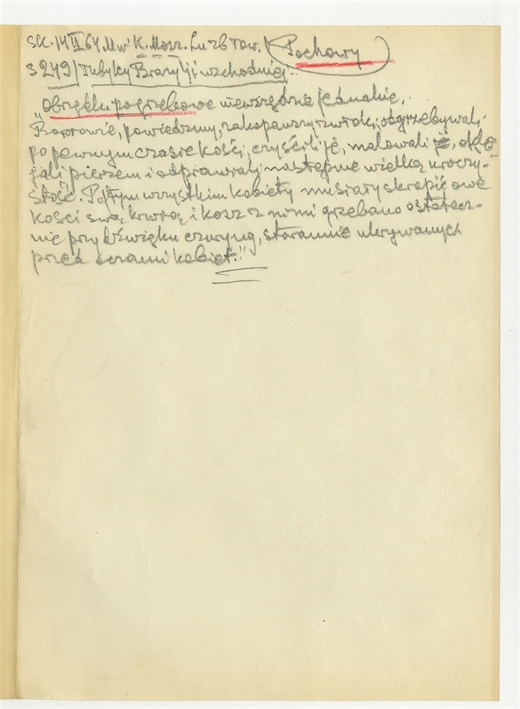 SK. 14 II 64. Mwr K. Mosz. Lu zb row. / Pochowy
S 249 / Tubylcy Brazylji wschodniej.
"Obrządki pogrzebowe niewszędzie jednakie.
Bororowie, powiedzmy, zakopawszy zwłoki, odgrzebywali,
po pewnym czasie kości, czyścili je, malowali,
jali pierzem i odprawiali następnie wielką uroczy-
stość. Po tym wszystkim kobiety musiały skropić owe
kości swą krwią i kosz z nimi grzebano ostatecz-
nie przy dźwięku czuryng, starannie ukrywanych
przed oczami kobiet."